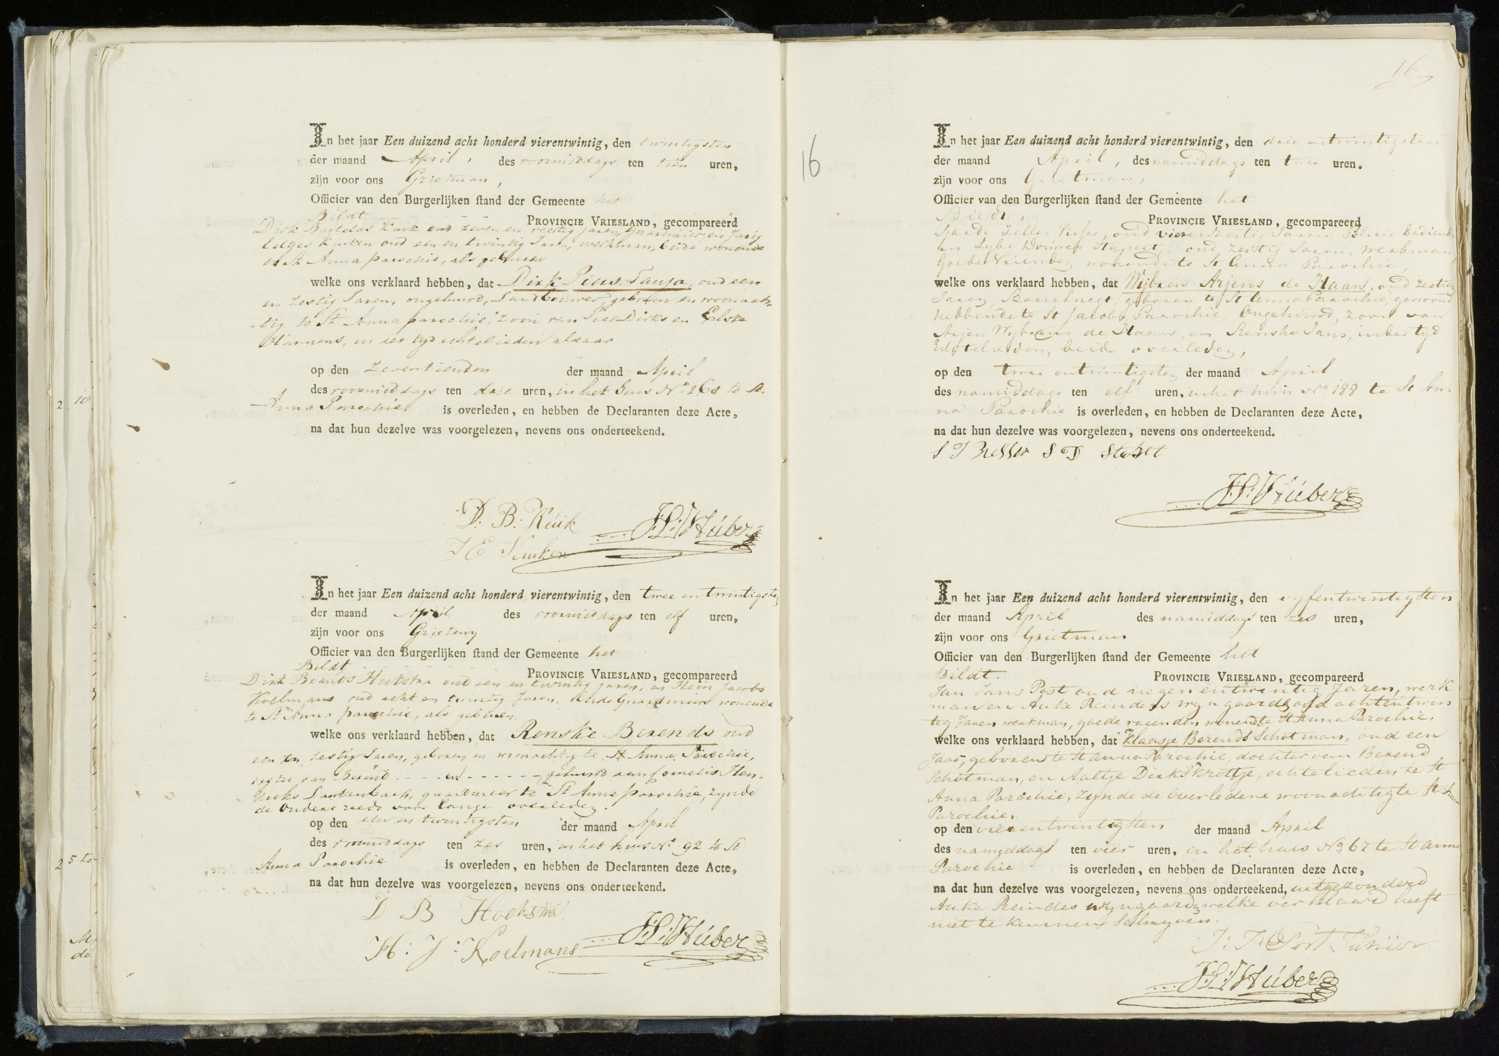 In het jaar Een duizend acht honderd vierentwintig, den twintigsten
der maand April, des voormiddags ten tien uren,
zijn voor ons Grietman,
Officier van den Burgerlijken stand der Gemeente het
Bildt PROVINCIE VRIESLAND, gecompareerd
Dirk oud zeven en veertig Jaren,
oud een en twintig Jaren, werkman, beide wonende
te St Anna parochie, als geburen
welke ons verklaard hebben, dat Dirk Pieters oud een
en zestig Jaren, ongehuwd, Landbouwer, geboren en woonach-
tig te St Anna parochie, zoon van Dirks en
Harmens, in der tijd echtelieden aldaar
op den zeventienden der maand April
des voormiddags ten drie uren, in het huis No 268 te St
Anna Parochie is overleden, en hebben de Declaranten deze Acte,
na dat hun dezelve was voorgelezen, nevens ons onderteekend.
D: B: Kuik
Huber
In het jaar Een duizend acht honderd vierentwintig, den twee en twintigste
der maand April des voormiddags ten elf uren,
zijn voor ons Grietman
Officier van den Burgerlijken stand der Gemeente het
Bildt PROVINCIE VRIESLAND, gecompareerd
Dirk Beerts Hoekstra oud een en twintig jaren, en Hein Jacobs
Koelmans oud acht en twintig Jaren, beide Gardeniers wonende
te St Anna parochie, als geburen
welke ons verklaard hebben, dat Renske Berends oud
een en zestig Jaren, geboren en woonachtig te St Anna Parochie,
dochter van Berend - - - - en - - - - - - gehuwd aan Cornelis Hen-
driks Lautenbach, gardenier te St Anna parochie, zijnde
de ouders reeds voor lange overleden.
op den een en twintigsten der maand April
des voormiddags ten zes uren, in het huis No 92 te St
Anna Parochie is overleden, en hebben de Declaranten deze Acte,
na dat hun dezelve was voorgelezen, nevens ons onderteekend.
D B Hoekstra
H: J: Koelmans Huber
16
16
In het jaar Een duizend acht honderd vierentwintig, den drie entwintigsten
der maand April, des namiddags ten twee uren.
zijn voor ons Grietman,
Officier van den Burgerlijken stand der Gemeente het
Bildt, PROVINCIE VRIESLAND, gecompareerd
oud Jaren
en Douwes Stapert, oud zestig Jaren, werkman
goede Vrienden, wonende te St Anna Parochie
welke ons verklaard hebben, dat Wijbren Arjens de Haan, oud zestig
Jaren, geboren te St Anna Parochie, gewoond
hebbende te St Jacobi Parochie Ongehuwd, zoon van
Arjen Wijbrens de Haan, en Renske Jans, in der tijd
Echtelieden, beide overleden,
op den twee entwintigsten der maand April
des namiddags ten elf uren, in het huis No 188 te St An-
na Parochie is overleden, en hebben de Declaranten deze Acte,
na dat hun dezelve was voorgelezen, nevens ons onderteekend.
Huber
In het jaar Een duizend acht honderd vierentwintig, den vyfentwintigsten
der maand April des namiddags ten zes uren,
zijn voor ons Grietman
Officier van den Burgerlijken stand der Gemeente het
Bildt PROVINCIE VRIESLAND, gecompareerd
Jan Jans Post oud negen en twintig Jaren, werk
man en Auke Reinders Wijngaard, oud achtentwin
tig Jaren werkman, goede vrienden wonende te St Anna Parochie
welke ons verklaard hebben, dat Klaaske Berends Schotman, oud een
Jaar, geboren te St Anna Parochie, dochter van Berend
Schotman, en Aaltje Dirks Krottje, echtelieden te St
Anna Parochie, zijnde de overledene woonachtig te St
Parochie,
op den vierentwintigsten der maand April
des namiddags ten vier uren, in het huis No 367 te St Anna
Parochie is overleden, en hebben de Declaranten deze Acte,
na dat hun dezelve was voorgelezen, nevens ons onderteekend, uitgezonderd
Auke Reinders Wijngaard, welke verklaard heeft
niet te kunnen schryven.
J: J: Post Junior
Huber